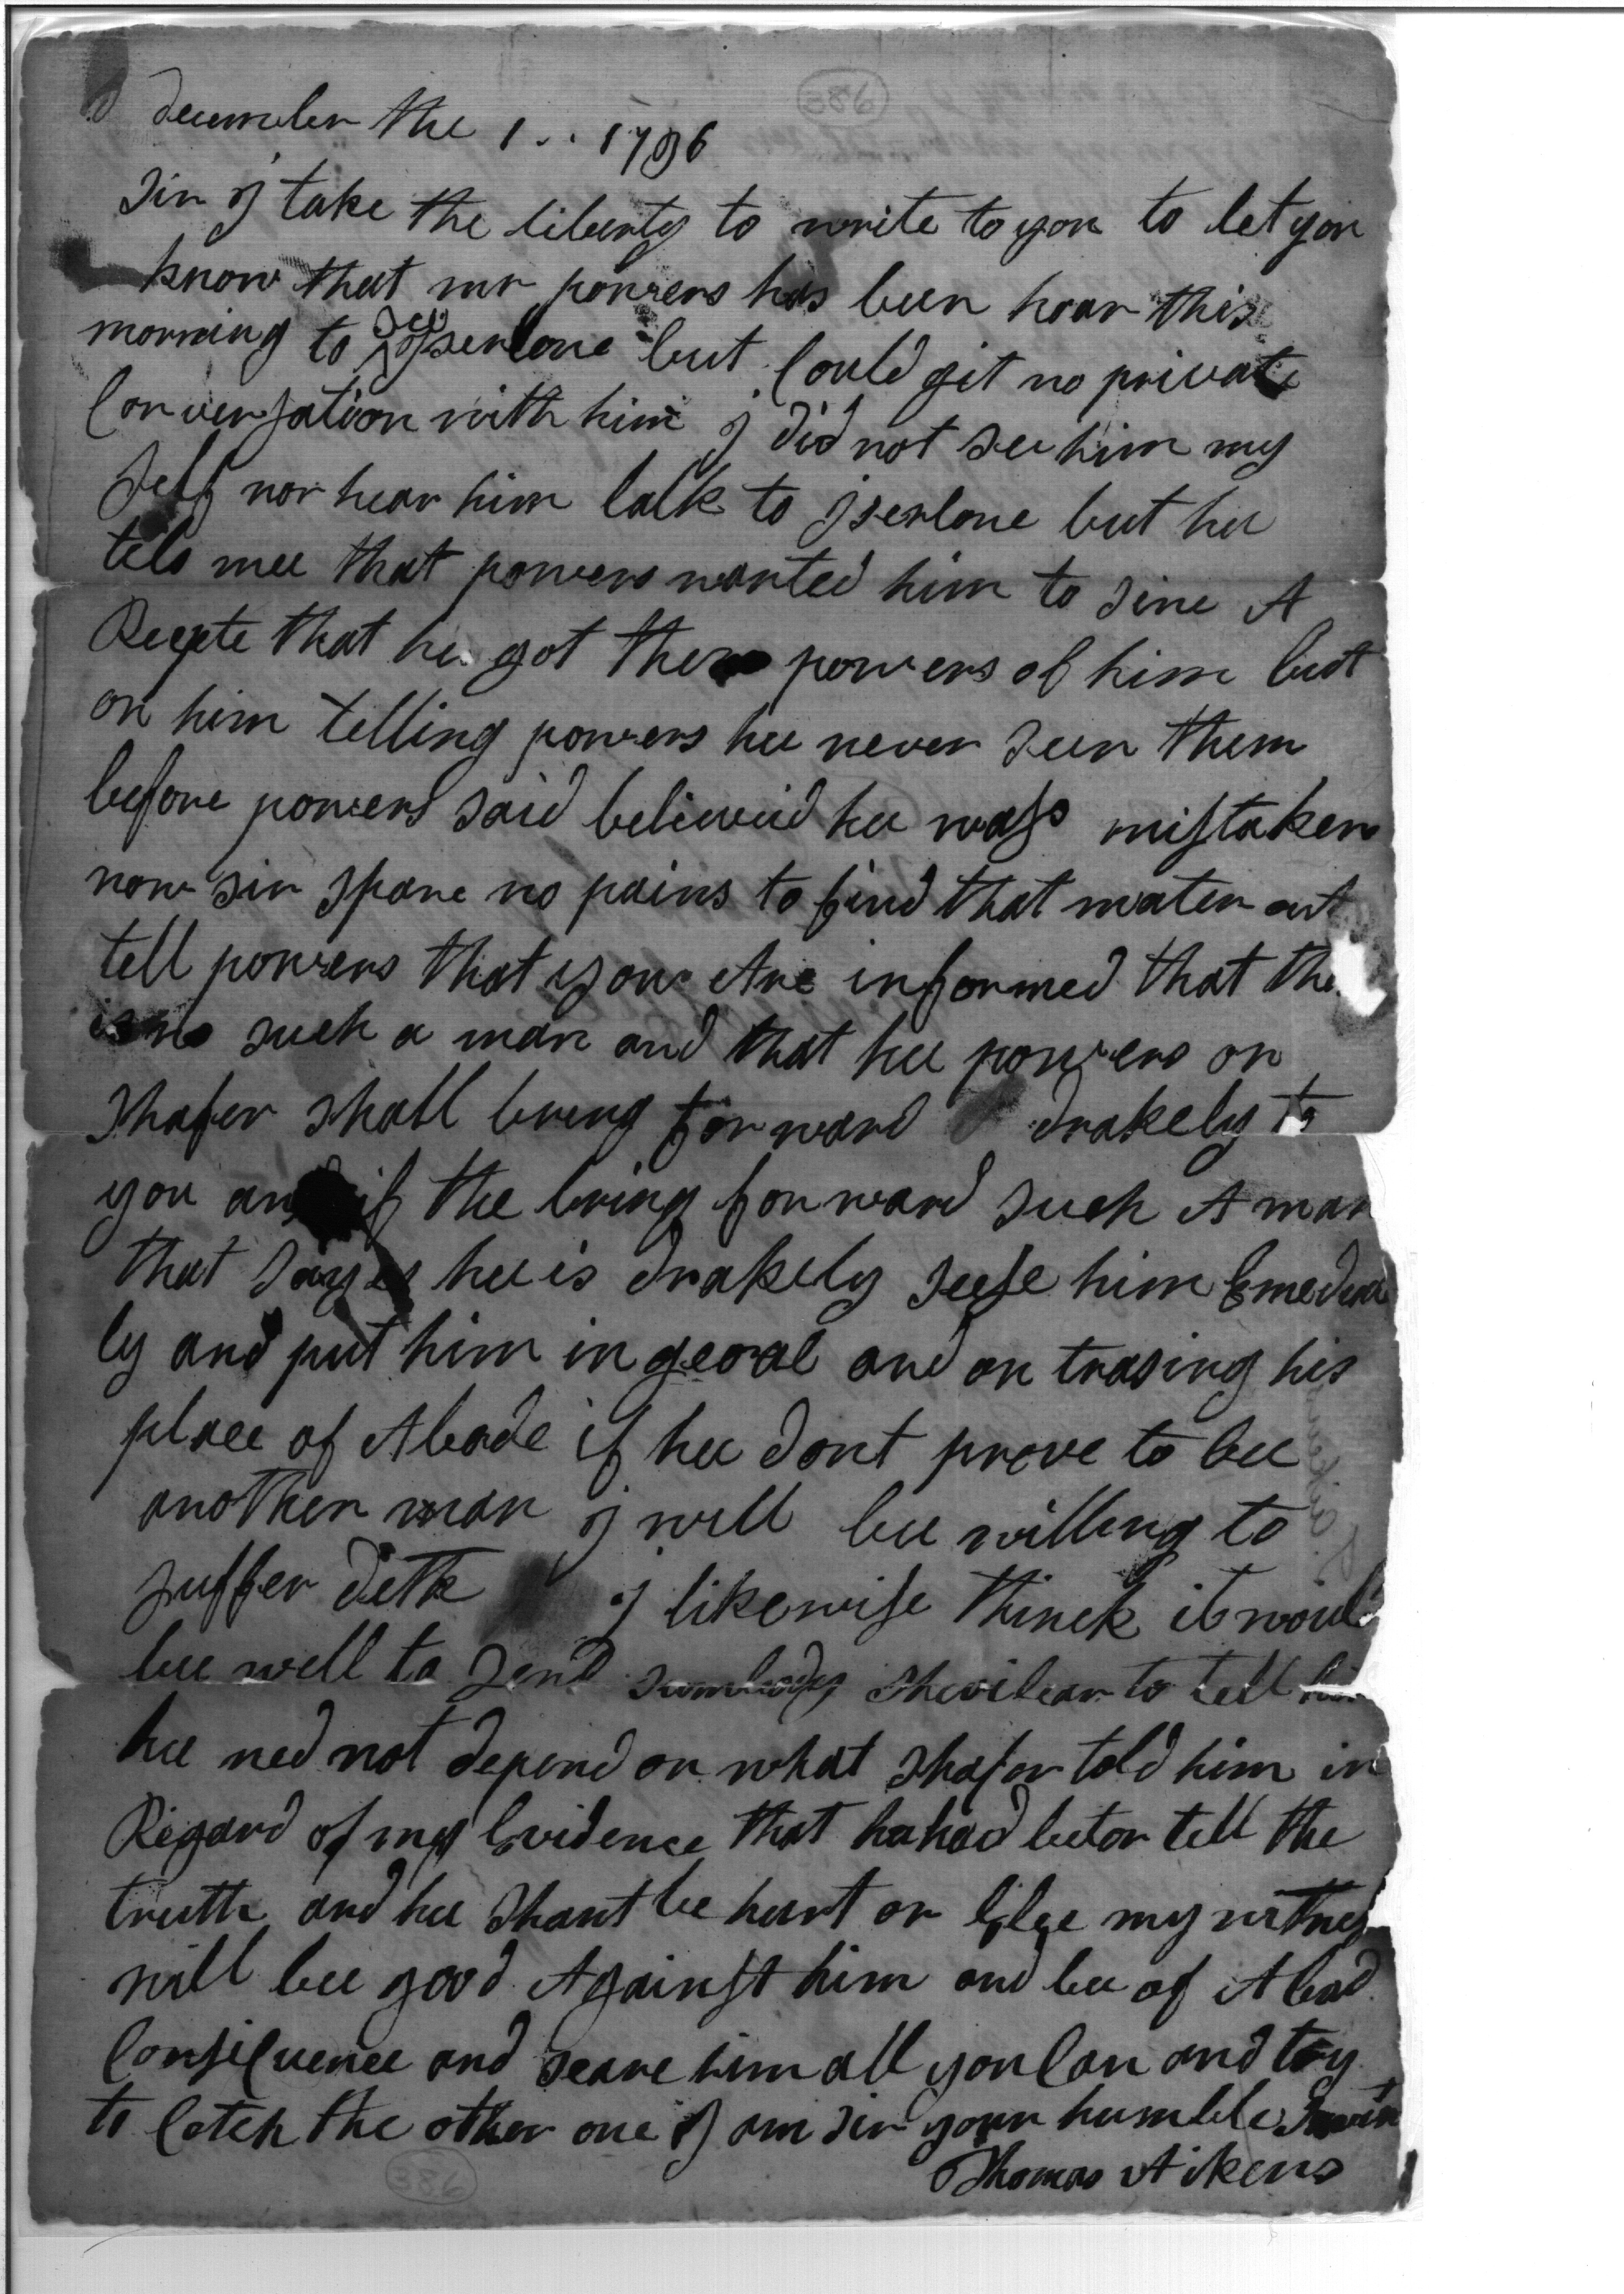 december the 1 .. 1786
Sir j take the liberty to write to you to let you
know that mr powers has been hear this
morning to see jserlone but Could git no private
Conversation with him j did not see him my
Self nor hear him talk to jserlone but hee
tels mee that powers wanted him to sine A
Recepte that he got powers of him but
on him telling powers hee never seen them
before powers said believeid hee wass mistaken
now sir spare no pains to find that mater out
tell powers that you Are informed that
is no such a man and that hee powers or
Shafer shall bring forward drakely to
you and if the bring forward such A man
that Sayes hee is drakely seese him
ly and put him in geoal and on trasing his
place of Abode if hee dont prove to bee
another man j will bee willing to
suffer deth j likewise thinck it would
bee well to Send sumbody to tell him
hee ned not depend on what shafor told him in
Regard of my Evidence that ha had betor tell the
truth and hee shant be hurt or Else my witnes
will bee good Against him and bee of A bad
Consiquence and scare him all you Can and try
to Cetch the other one j am sir your humble
Thomas Aikens
386